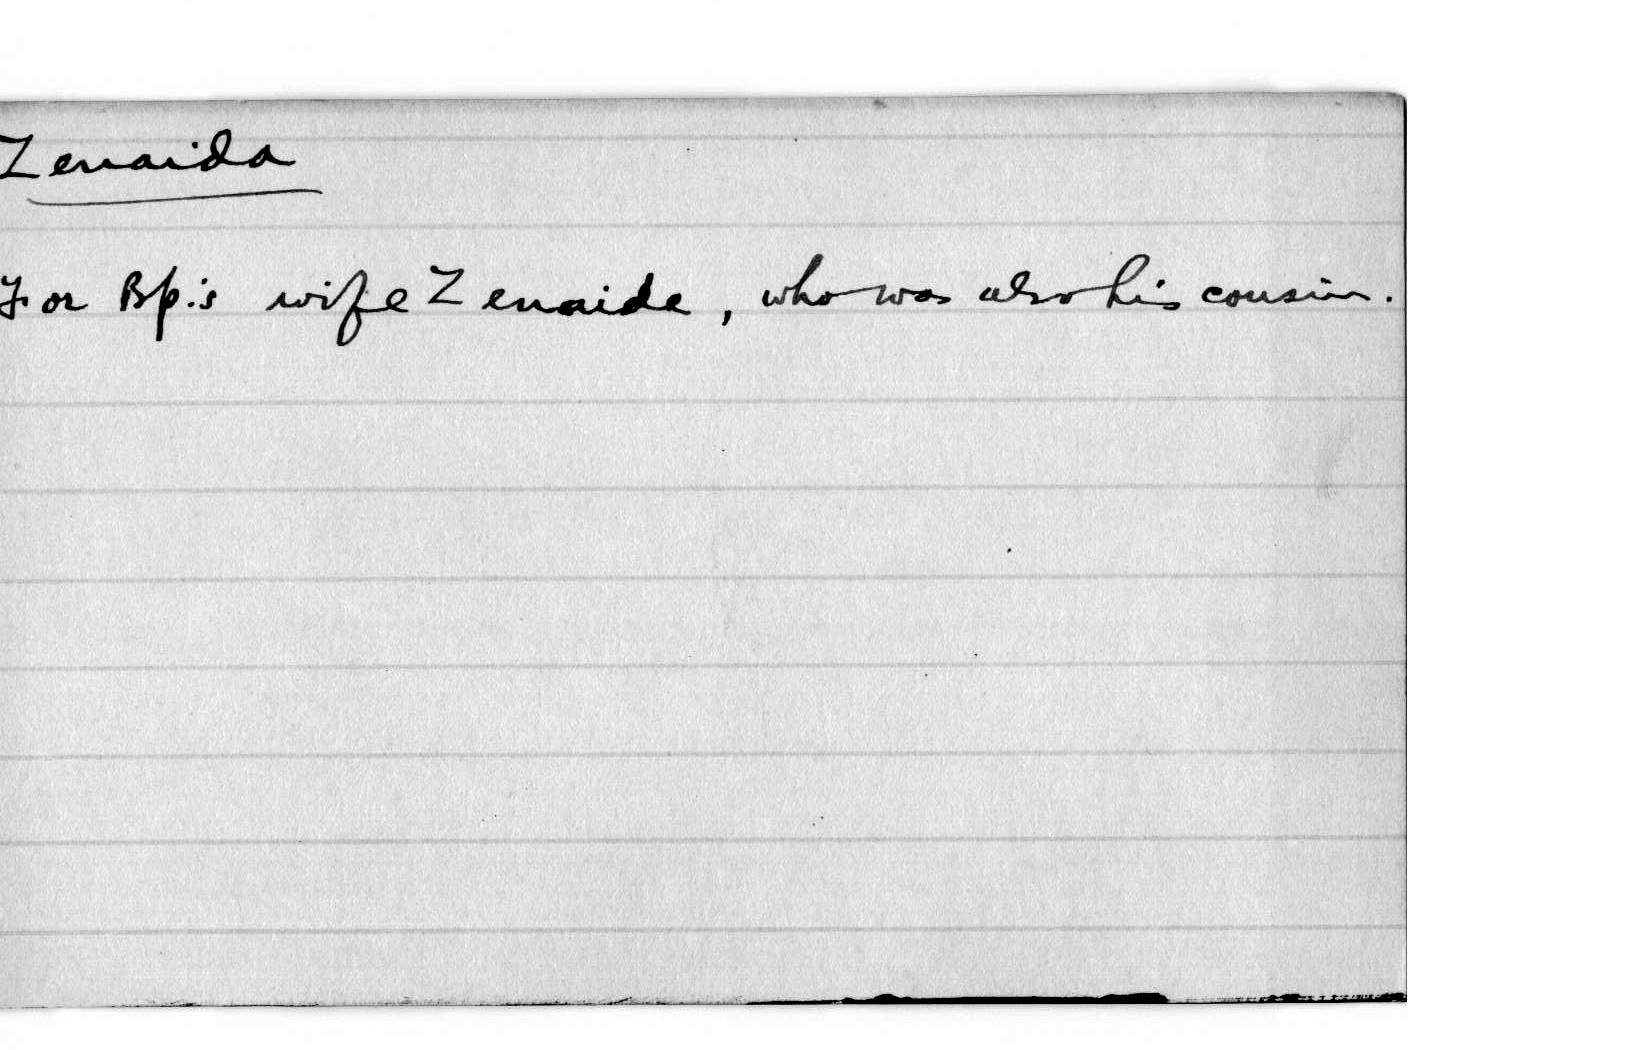 Zenaida
For Bp.'s wife Zenaide, who was also his cousin.